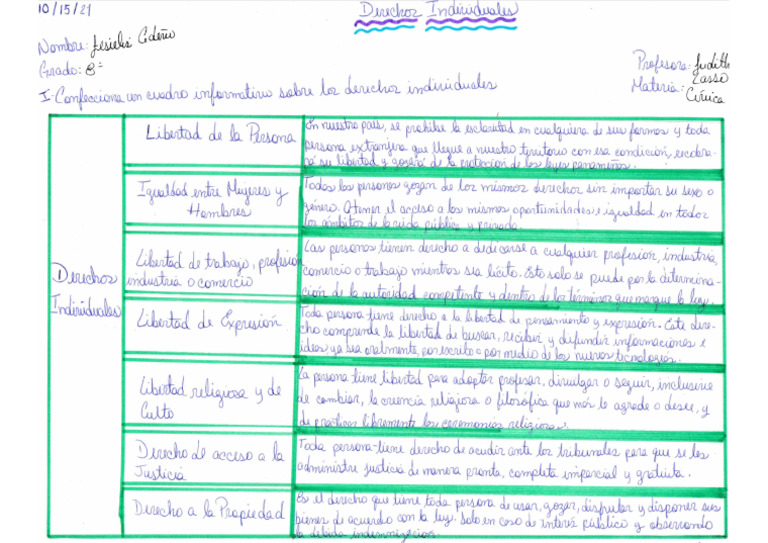 10/15/21
Derechos Individuales
Nombre: Jesielis Cedeño
Grado: 8°
Profesora: Judith Lasso
Materia: Cívica
I-Confecciona un cuadro informativo sobre los derechos individuales
Derechos
Individuales
Libertad de la Persona
En nuestro país, se prohíbe la esclavitud en cualquiera de sus formas y toda
persona extranjera que llegue a nuestro territorio con esa condición, recobra-
rá su libertad y gozará de la protección de las leyes panameñas.
Igualdad entre Mujeres y
Hombres
Todas las personas gozan de los mismos derechos sin importar su sexo o
género. Obtener el acceso a las mismas oportunidades e igualdad en todos
los ámbitos de la vida pública y privada.
Libertad de trabajo, profesión
industria o comercio
Las personas tienen derecho a dedicarse a cualquier profesion, industria,
comercio o trabajo mientras sea lícito. Esto solo se puede por la determina-
ción de la autoridad competente y dentro de los términos que marque la ley.
Libertad de Expresión
Toda persona tiene derecho a la libertad de pensamiento y expresión. Este dere-
cho comprende la libertad de buscar, recibir y difundir informaciones e
ideas ya sea oralmente, por escrito o por medio de las nuevas tecnologías.
Libertad religiosa y de
Culto
La persona tiene libertad para adoptar profesar, divulgar o seguir, inclusive
de cambiar, la creencia religiosa o filosófica que más le agrade o desee, y
de practicar libremente las ceremonias religiosas.
Derecho de acceso a la
Justicia
Toda persona tiene derecho de acudir ante los tribunales para que se les
administre justicia de manera pronta, completa imparcial y gratuita.
Derecho a la Propiedad
Es el derecho que tiene toda persona de usar, gozar, disfrutar y disponer sus
bienes de acuerdo con la ley. Solo en caso de interés público y observando
la debida indemnización.